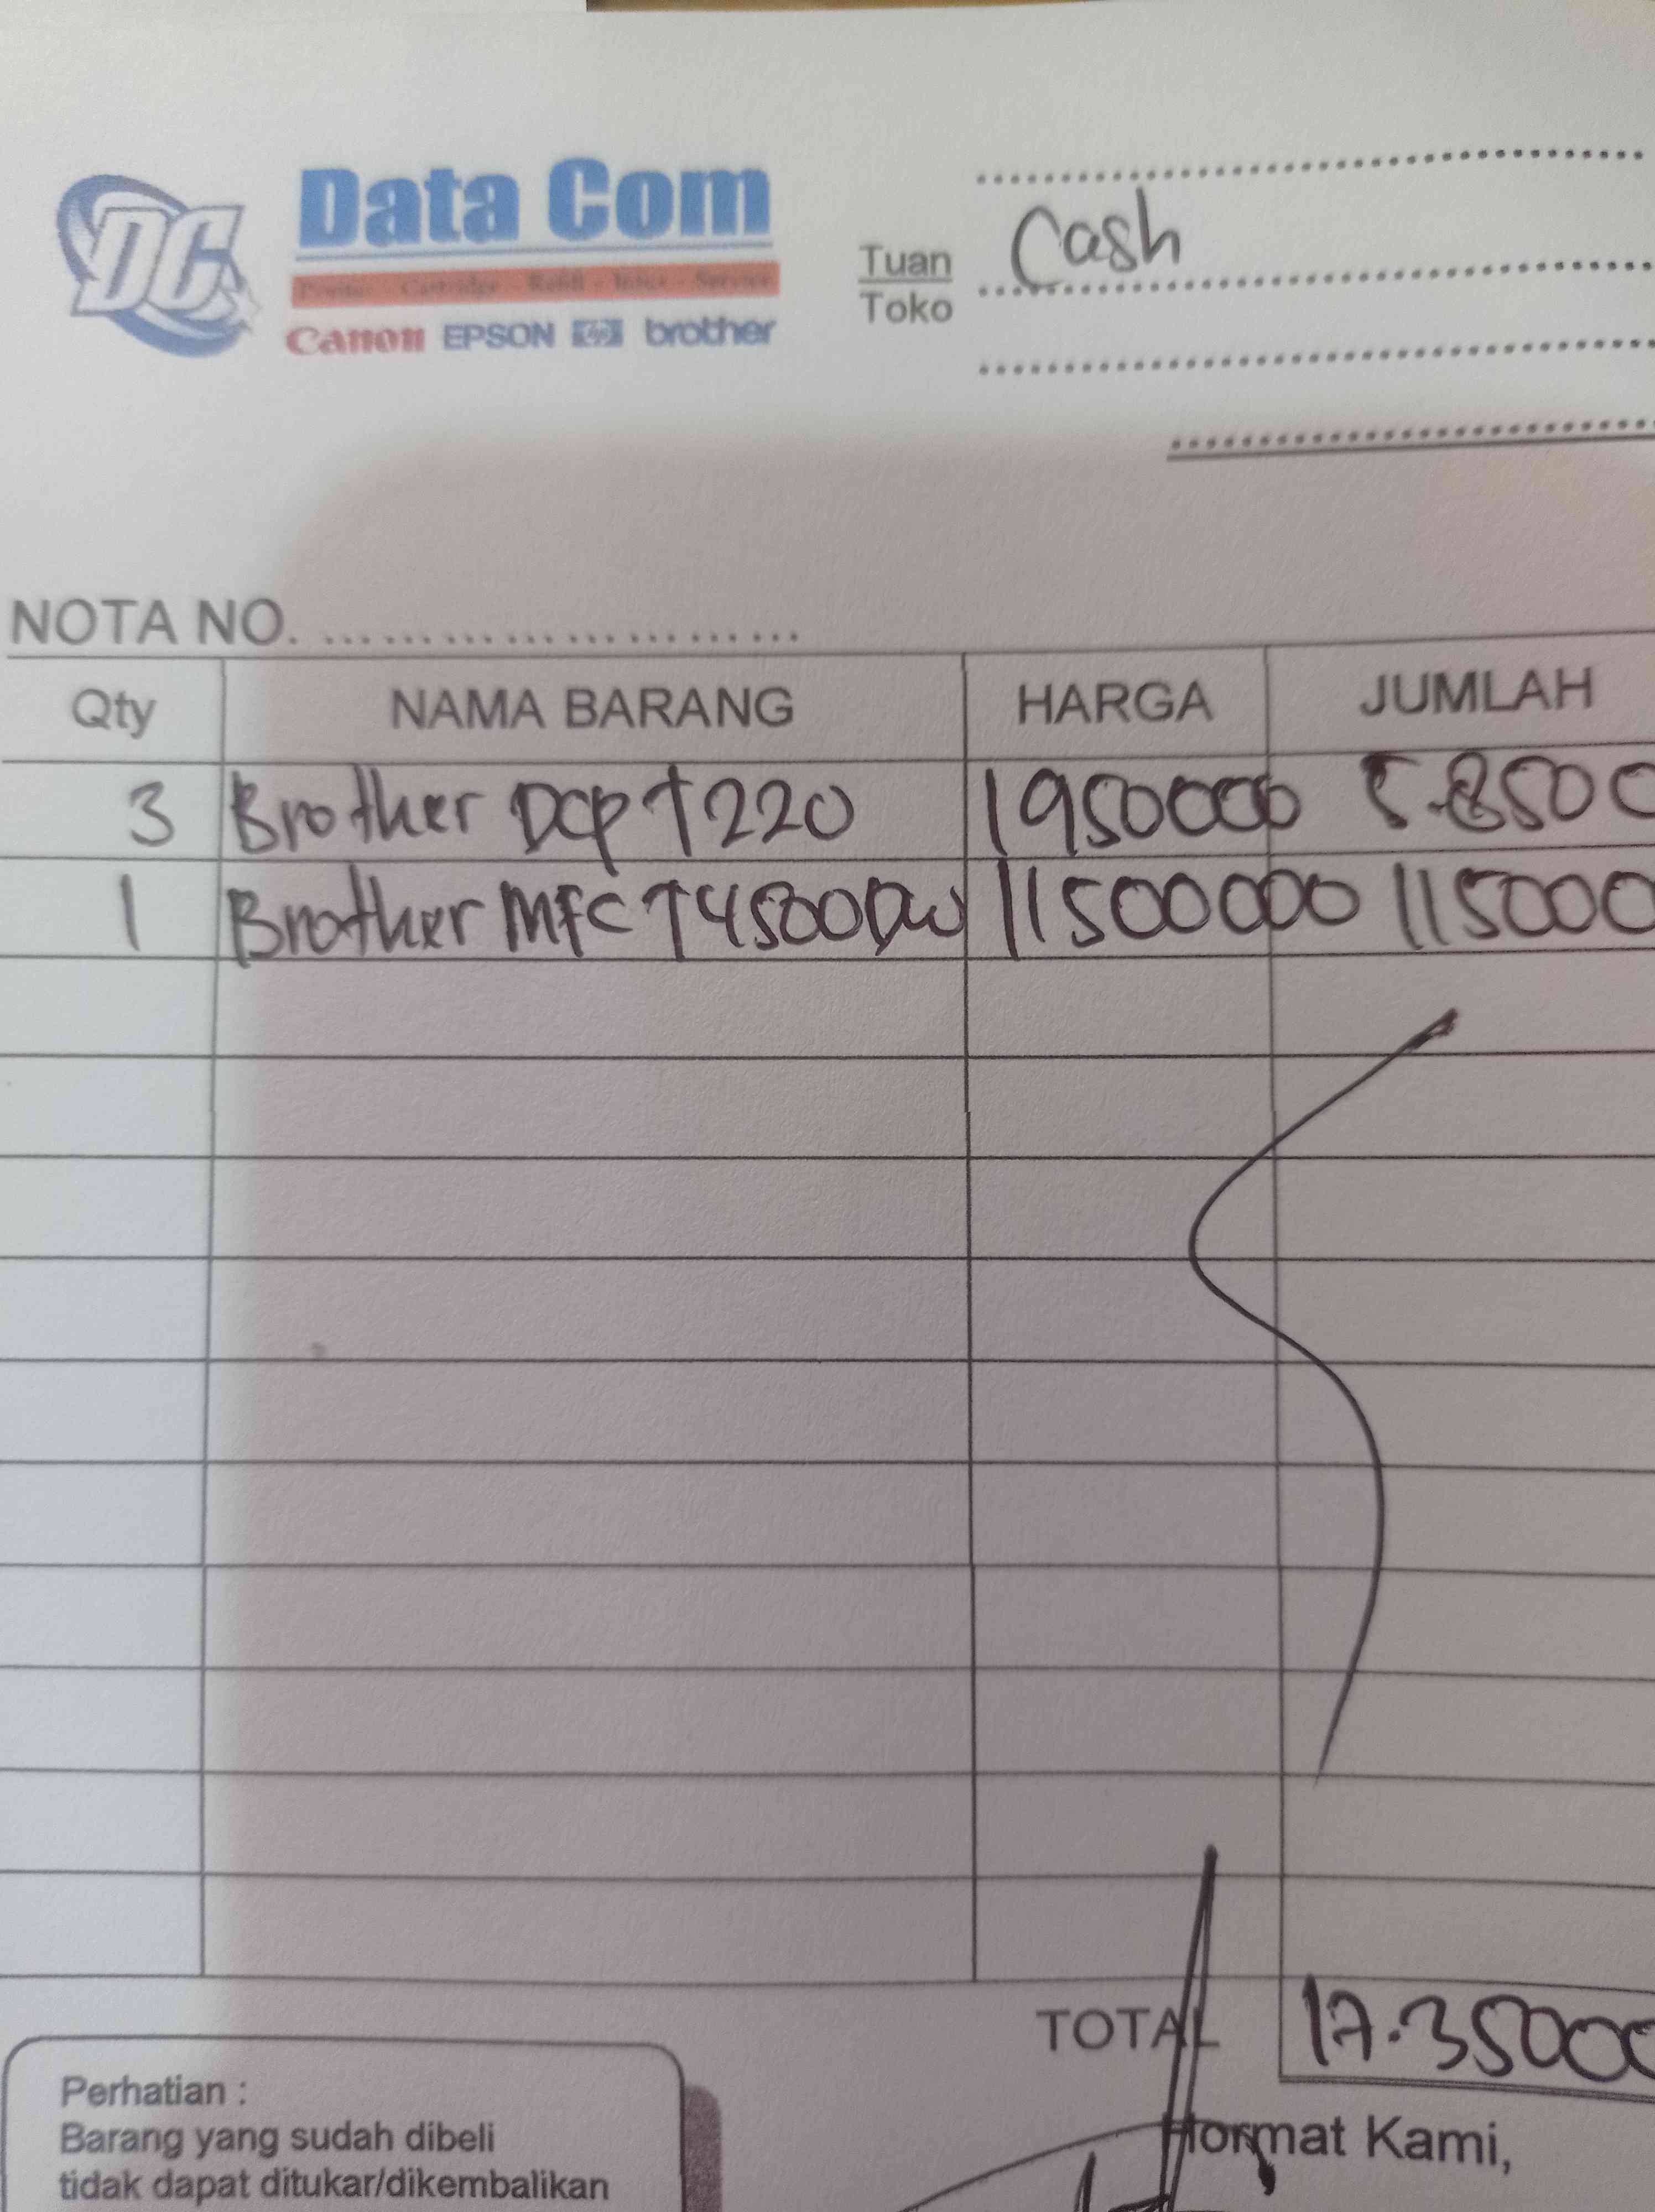 DC
Data Com
Printer - Cartridge - Refill - Infus - Service
Canon EPSON hp brother
Tuan
Toko
Cash
NOTA NO. ..........................
Qty NAMA BARANG HARGA JUMLAH
3 Brother DCP T220 1950000 5.8500
1 Brother MFC T4500DW 11500000 115000
TOTAL 17.35000
Perhatian :
Barang yang sudah dibeli
tidak dapat ditukar/dikembalikan
Hormat Kami,